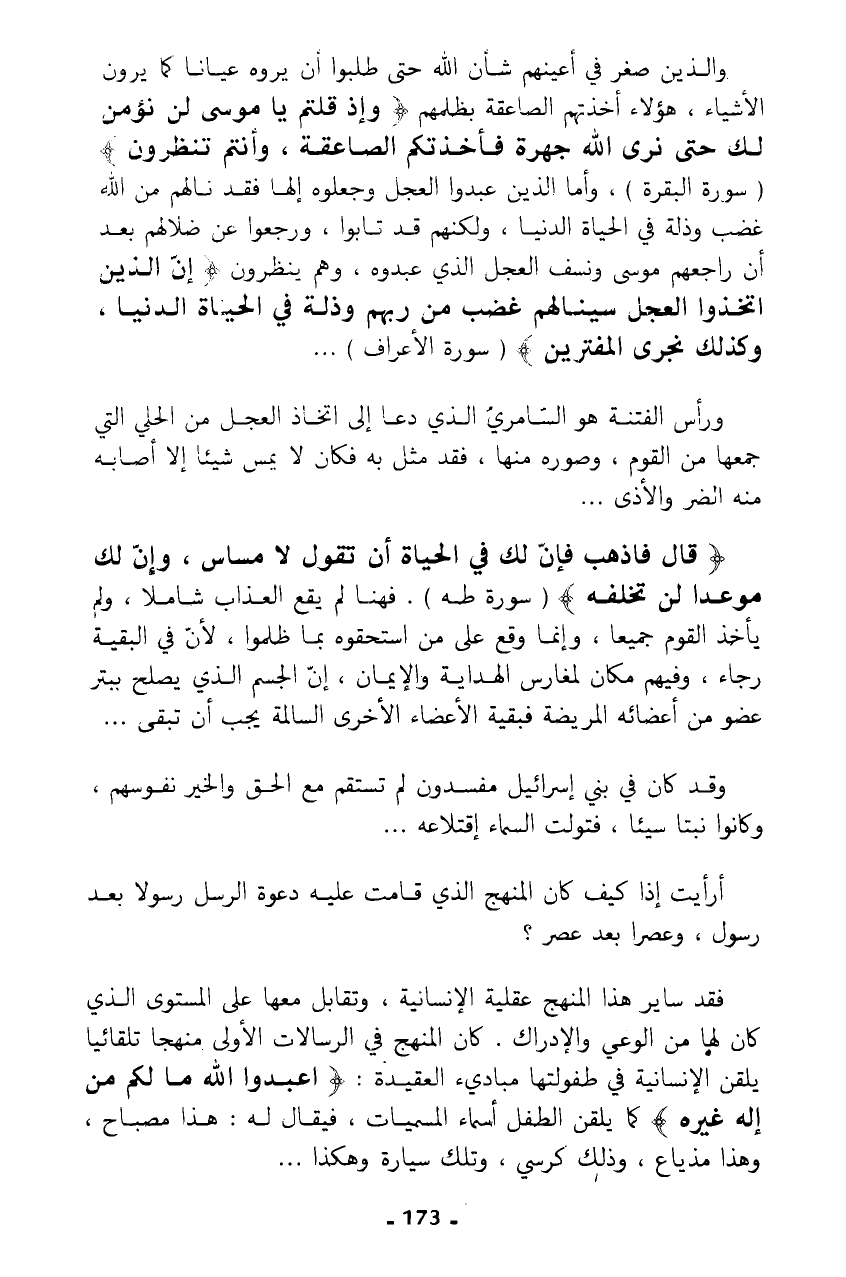 والذين صغر في أعينهم شأن الله حتى طلبوا أن يروه عيانا كما يرون
الأشياء ، هؤلاء أخذتهم الصاعقة بظلمهم ﴿ وإذ قلتم يا موسى لن نؤمن
لك حتى نرى الله جهرة فأخذتكم الصاعقة ، وأنتم تنظرون ﴾
( سورة البقرة ) ، وأما الذين عبدوا العجل وجعلوه إلها فقد نالهم من الله
غضب وذلة في الحياة الدنيا ، ولكنهم قد تابوا ، ورجعوا عن ضلالهم بعد
أن راجعهم موسى ونسف العجل الذي عبدوه ، وهم ينظرون ﴿ إنّ الذين
اتخذوا العجل سينالهم غضب من ربهم وذلة في الحياة الدنيا ،
وكذلك نجرى المفترين ﴾ ( سورة الأعراف ) ...
ورأس الفتنة هو السّامريّ الذي دعا إلى اتخاذ العجل من الحلي التي
جمعها من القوم ، وصوره منها ، فقد مثل به فكان لا يمس شيئا إلا أصابه
منه الضر والأذى ...
﴿ قال فاذهب فإنّ لك في الحياة أن تقول لا مساس ، وإنّ لك
موعدا لن تخلفه ﴾ ( سورة طه ) . فهنا لم يقع العذاب شاملا ، ولم
يأخذ القوم جميعا ، وإنما وقع على من استحقوه بما ظلموا ، لأنّ في البقية
رجاء ، وفيهم مكان لمغارس الهداية والإيمان ، إنّ الجسم الذي يصلح ببتر
عضو من أعضائه المريضة فبقية الأعضاء الأخرى السالمة يجب أن تبقى ...
وقد كان في بني إسرائيل مفسدون لم تستقم مع الحق والخير نفوسهم ،
وكانوا نبتا سيئا ، فتولت السماء إقتلاعه ...
أرأيت إذا كيف كان المنهج الذي قامت عليه دعوة الرسل رسولا بعد
رسول ، وعصرا بعد عصر ؟
فقد ساير هذا المنهج عقلية الإنسانية ، وتقابل معها على المستوى الذي
كان لها من الوعي والإدراك . كان المنهج في الرسالات الأولى منهجا تلقائيا
يلقن الإنسانية في طفولتها مباديء العقيدة : ﴿ اعبدوا الله ما لكم من
إله غيره ﴾ كما يلقن الطفل أسماء المسميات ، فيقال له : هذا مصباح ،
وهذا مذياع ، وذلك كرسي ، وتلك سيارة وهكذا ...
- 173 -